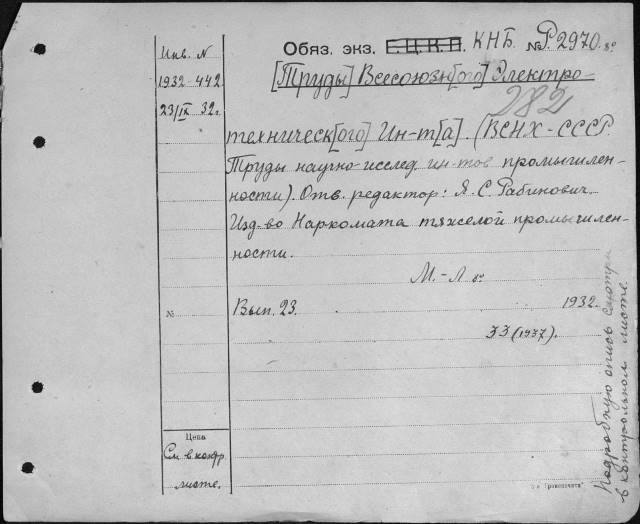 Обяз. экз. Г.Ц.К.П. КНБ. № Р2970. 8°
Инв. N
1932-442
23/IX 32г.
[Труды] Всесоюзн[ого] Электро-
282
техническ[ого] Ин-т[а]. (ВСНХ-СССР.
Труды научно-исслед. ин-тов промышлен-
ности). Отв. редактор: Я. С. Рабинович.
Изд-во Наркомата тяжелой промышлен-
ности.
М.-Л 8°
№ Вып. 23. 1932.
33 (1937).
Цена
См. в контр.
листе.
Подробную опись смотри
в контрольном листе.